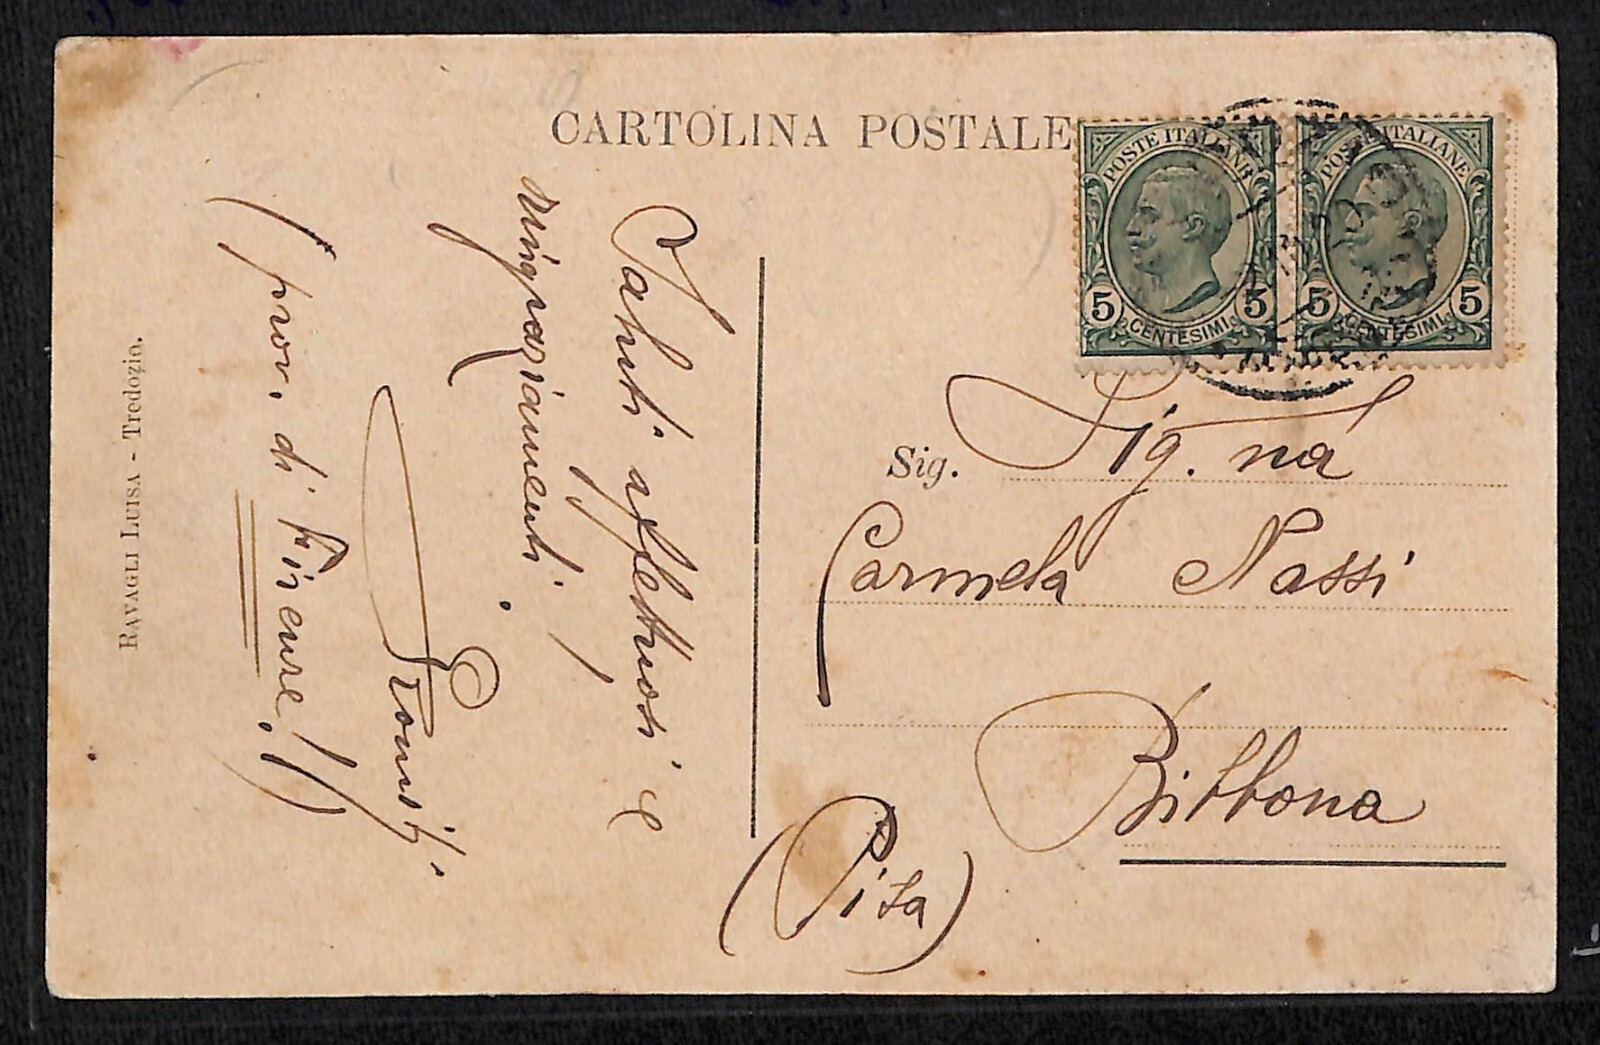 CARTOLINA POSTALE
POSTE ITALIANE
5 5
CENTESIMI
POSTE ITALIANE
5 5
CENTESIMI
Sig. Sig.na
Carmela Nassi
Bibbona
(Pisa)
Saluti affettuosi e
ringraziamenti.
(prov. di Firenze!!)
RAVAGLI LUISA - Tredozio.